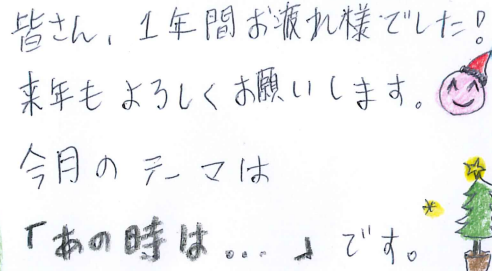 皆さん、1年間お疲れ様でした!
来年もよろしくお願いします。
今月のテーマは
「あの時は...」です。